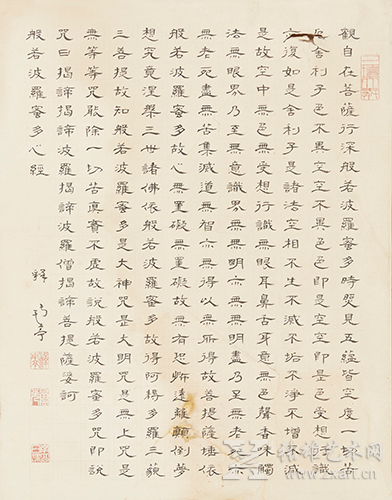 觀自在菩薩行深般若波羅蜜多時照見五蘊皆空度一切苦
厄舍利子色不異空空不異色色即是空空即是色受想行識
亦復如是舍利子是諸法空相不生不滅不垢不淨不增不減
是故空中無色無受想行識無眼耳鼻舌身意無色聲香味觸
法無眼界乃至無意識界無無明亦無無明盡乃至無老死亦
無老死盡無苦集滅道無智亦無得以無所得故菩提薩埵依
般若波羅蜜多故心無罣礙無罣礙故無有恐怖遠離顛倒夢
想究竟涅槃三世諸佛依般若波羅蜜多故得阿耨多羅三藐
三菩提故知般若波羅蜜多是大神咒是大明咒是無上咒是
無等等咒能除一切苦真實不虛故說般若波羅蜜多咒即說
咒曰揭諦揭諦波羅揭諦波羅僧揭諦菩提薩婆訶
般若波羅蜜多心經
釋